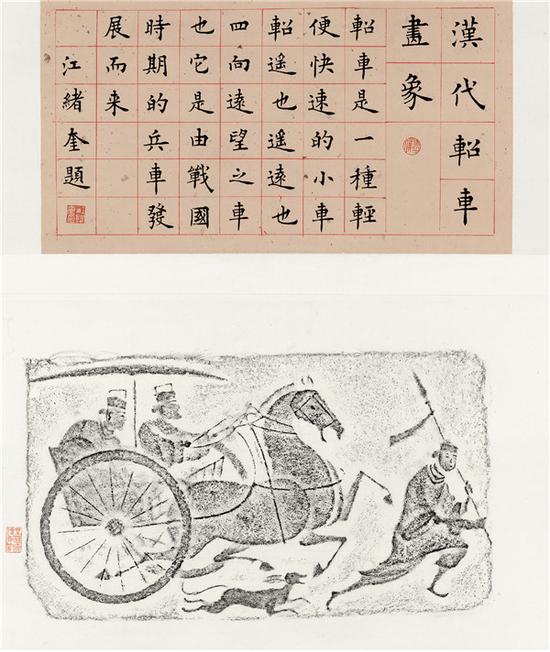 漢代軺車
畫象
軺車是一種輕
便快速的小車
軺遙也遙遠也
四向遠望之車
也它是由戰國
時期的兵車發
展而來
江緒奎題